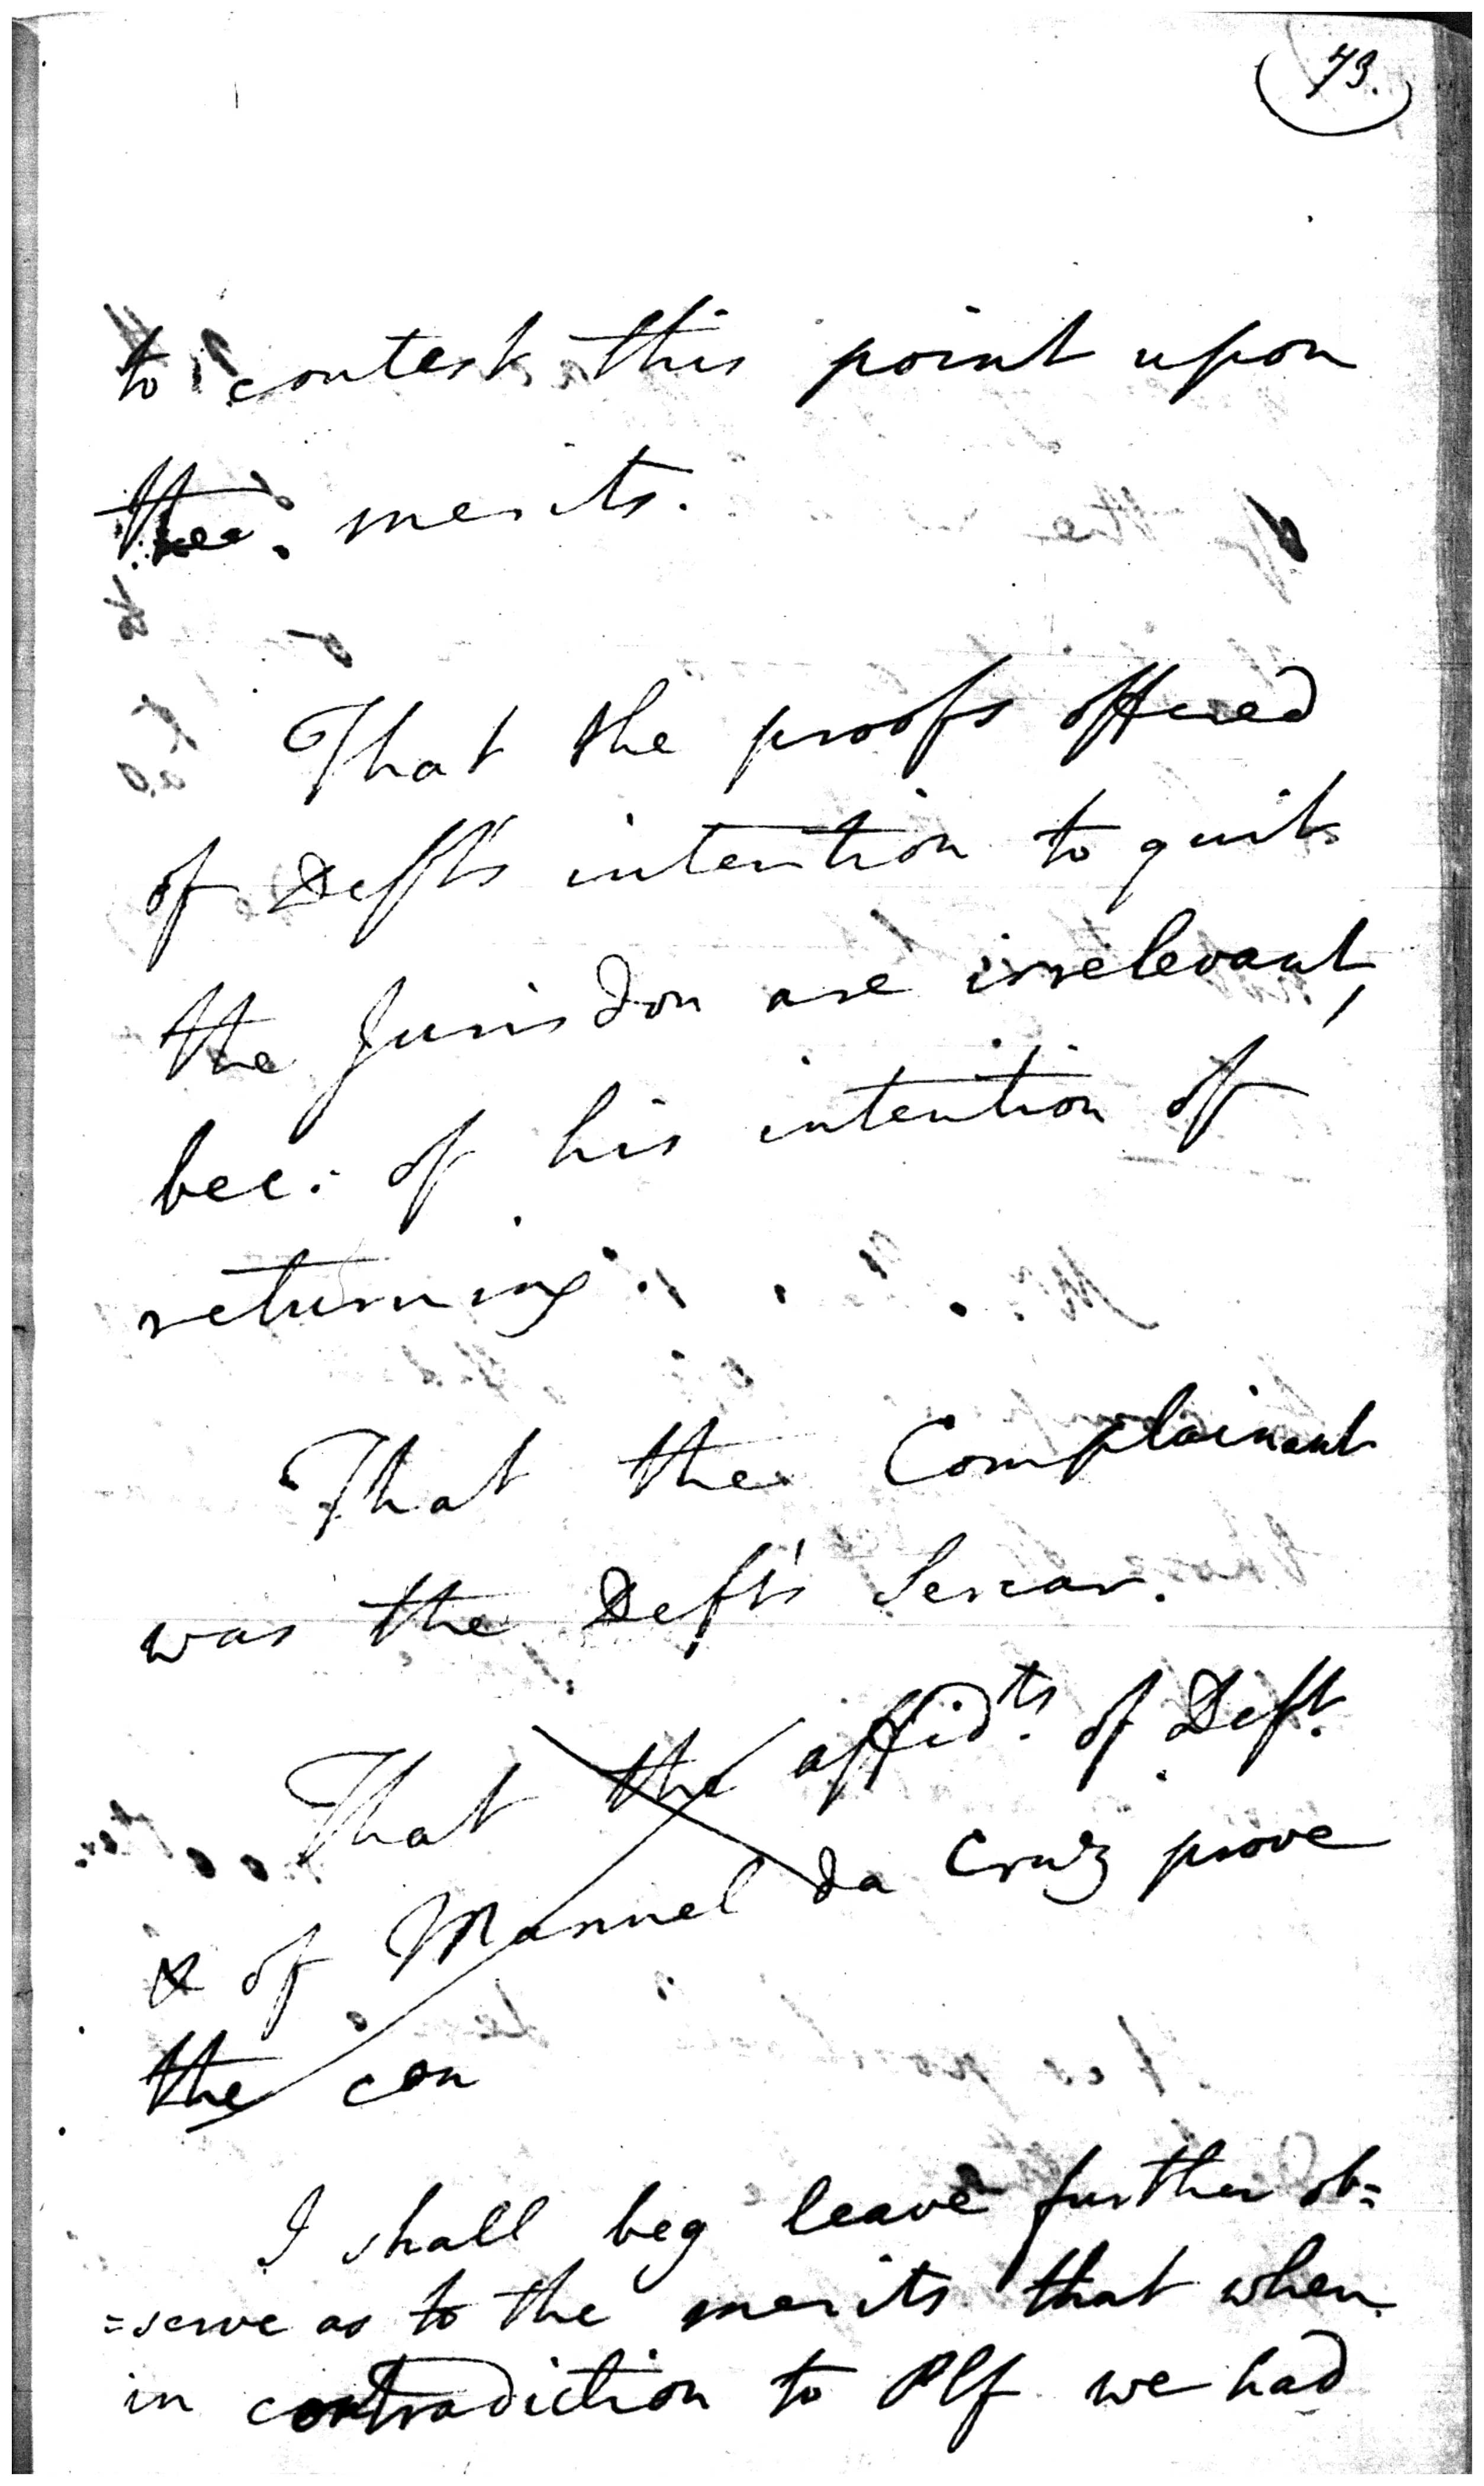 73.
to contest this point upon
the merits.
That the proofs offered
of Defts intention to quit
the Jurisdon are irrelevant,
bec: of his intention of
returning.
That the Complainant
was the Deft's Sercar.
That the affidts. of Deft.
& of Manuel da Cruz prove
the con
I shall beg leave further ob=
=serve as to the merits that when
in contradiction to Plf we had